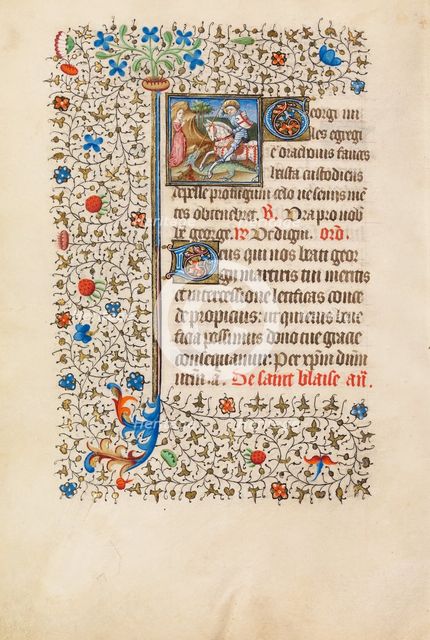 Georgi mi
les egregi
e draconis fauces
custodiens
repelle celo ne sensus me
tes obtenebret. Ora pro nob
be george. Ut digni. ord.
Deus qui nos beati geor
gii martiris tui meritis
et intercessione letificas conce
de propicius: ut qui eius bene
ficia poscimus dono tue gracie
consequamur. Per xp̄m dn̄m
nr̄m. a. De saint blaise an̄.